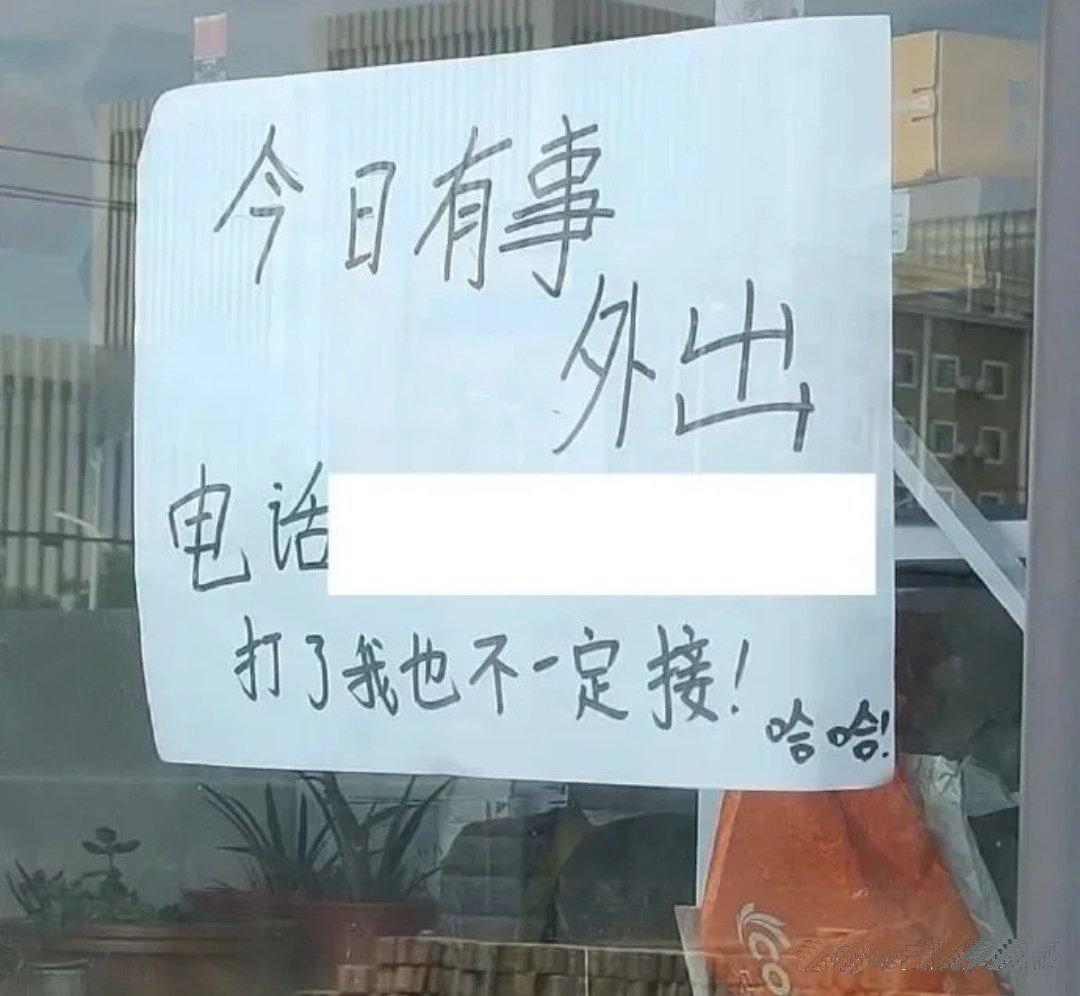 今日有事
外出
电话
打了我也不一定接!
哈哈!